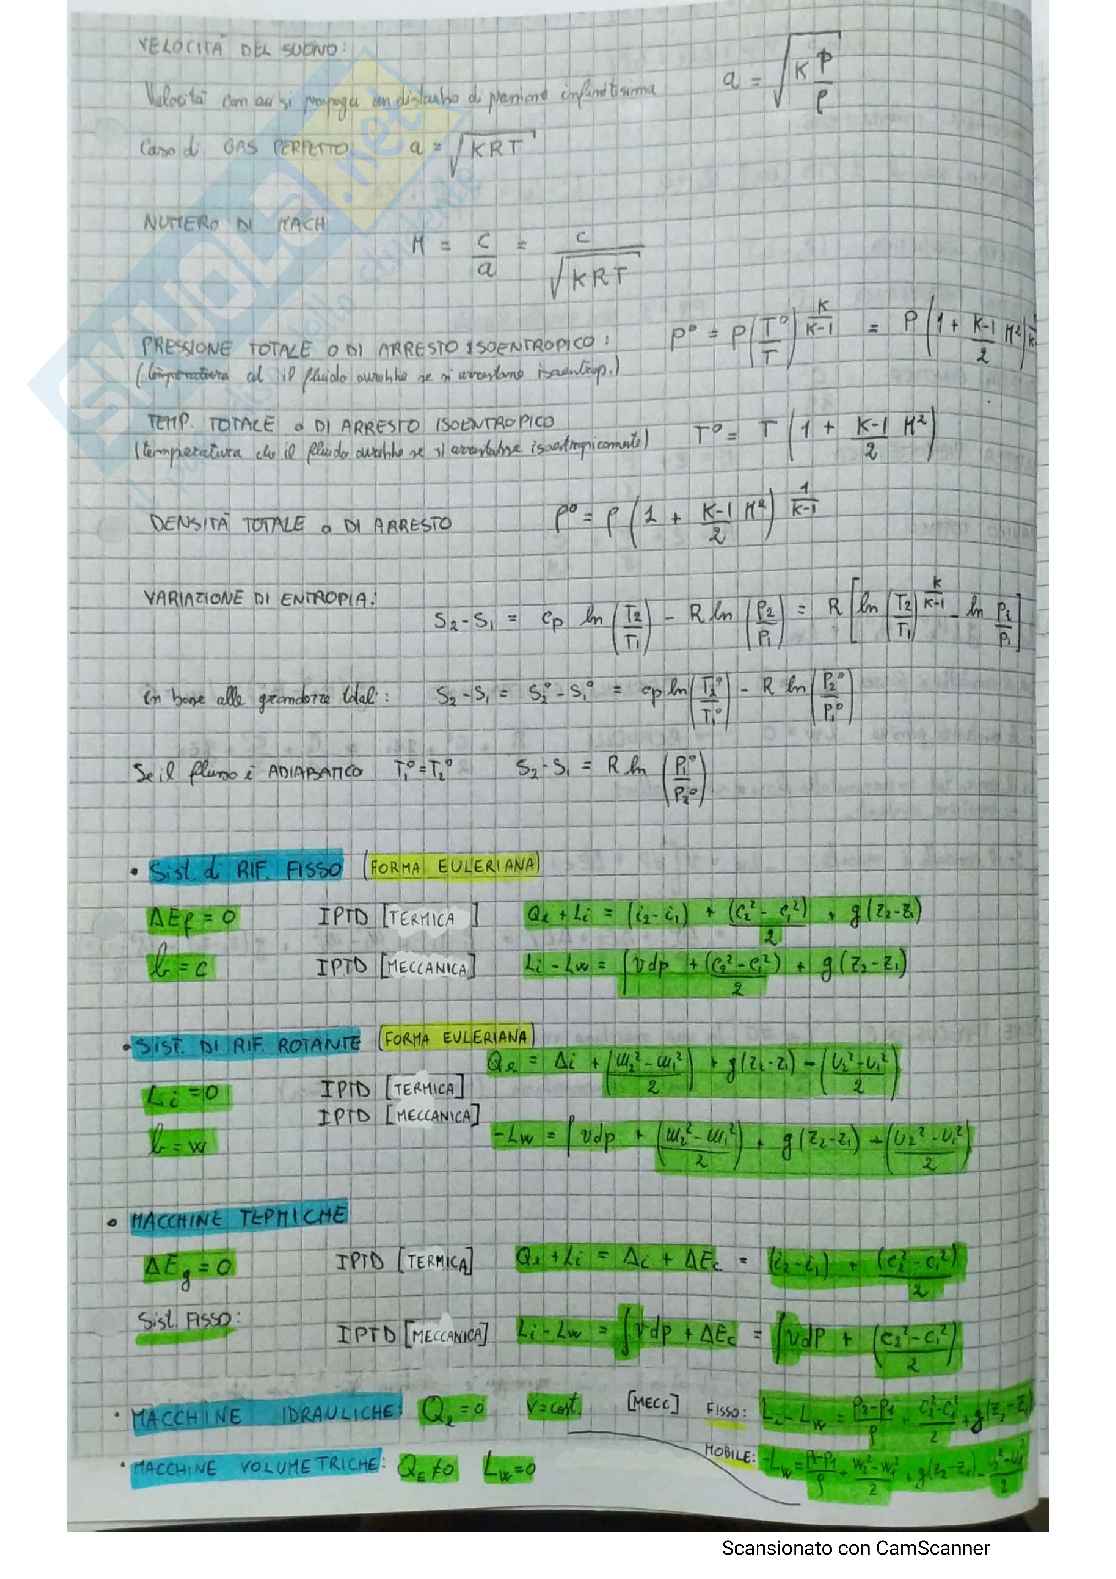 VELOCITÀ DEL SUONO:
Velocità con cui si propaga un disturbo di pressione infinitesima a = √(K p/ρ)
Caso di GAS PERFETTO a = √(KRT)
NUMERO DI MACH
M = c/a = c/√(KRT)
PRESSIONE TOTALE O DI ARRESTO ISOENTROPICO: P° = P (T°/T)^(K/(K-1)) = P (1 + (K-1)/2 M²)
(temperatura il fluido avrebbe se si isoentrop.)
TEMP. TOTALE o DI ARRESTO ISOENTROPICO
(temperatura che il fluido avrebbe se si arrestasse isoentropicamente) T° = T (1 + (K-1)/2 M²)
DENSITÀ TOTALE o DI ARRESTO ρ° = ρ (1 + (K-1)/2 M²)^(1/(K-1))
VARIAZIONE DI ENTROPIA:
S₂-S₁ = cp ln (T₂/T₁) - R ln (P₂/P₁) = R [ln (T₂/T₁)^(K/(K-1)) - ln P₂/P₁]
in base alle grandezze totali: S₂-S₁ = S₂°-S₁° = cp ln (T₂°/T₁°) - R ln (P₂°/P₁°)
Se il flusso è ADIABATICO T₁°=T₂° S₂-S₁ = R ln (P₁°/P₂°)
• Sist. di RIF. FISSO (FORMA EULERIANA)
ΔEf = 0 IPTD [TERMICA ] Qe + Li = (i₂-i₁) + (c₂²-c₁²)/2 + g(z₂-z₁)
b = c IPTD [MECCANICA] Li - Lw = ∫vdp + (c₂²-c₁²)/2 + g(z₂-z₁)
• SIST. DI RIF. ROTANTE (FORMA EULERIANA)
Qe = Δi + (w₂²-w₁²)/2 + g(z₂-z₁) - (u₂²-u₁²)/2
Li = 0 IPTD [TERMICA]
IPTD [MECCANICA]
b = w -Lw = ∫vdp + (w₂²-w₁²)/2 + g(z₂-z₁) - (u₂²-u₁²)/2
• MACCHINE TERMICHE
ΔEg = 0 IPTD [TERMICA] Qe + Li = Δi + ΔEc = (i₂-i₁) + (c₂²-c₁²)/2
Sist. FISSO:
IPTD [MECCANICA] Li - Lw = ∫vdp + ΔEc = ∫vdP + (c₂²-c₁²)/2
• MACCHINE IDRAULICHE: Qe = 0 v=cost. [MECC] FISSO: Li - Lw = (p₂-p₁)/ρ + (c₂²-c₁²)/2 + g(z₂-z₁)
MOBILE: -Lw = (p₂-p₁)/ρ + (w₂²-w₁²)/2 + g(z₂-z₁) - (u₂²-u₁²)/2
• MACCHINE VOLUMETRICHE: QE≠0 Lw=0
SKUOLA.net
Scansionato con CamScanner